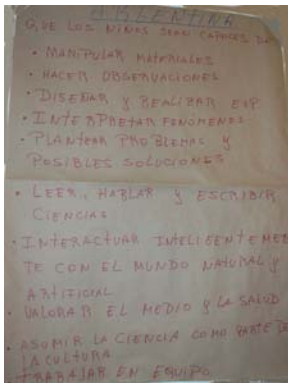 ARGENTINA
QUE LOS NIÑOS SEAN CAPACES DE
• MANIPULAR MATERIALES
• HACER OBSERVACIONES
• DISEÑAR Y REALIZAR EXP
• INTERPRETAR FENOMENOS
• PLANTEAR PROBLEMAS Y
POSIBLES SOLUCIONES
• LEER, HABLAR Y ESCRIBIR
CIENCIAS
• INTERACTUAR INTELIGENTEMEN
TE CON EL MUNDO NATURAL Y
ARTIFICIAL
• VALORAR EL MEDIO Y LA SALUD
• ASUMIR LA CIENCIA COMO PARTE DE
LA CULTURA
TRABAJAR EN EQUIPO